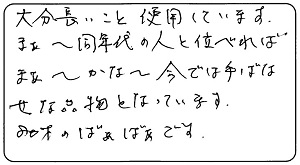 大分長いこと使用しています.
まぁ～同年代の人と位べれば
まぁ～かな～今では手ばは
せな品物となっています.
のばぁばぁです.